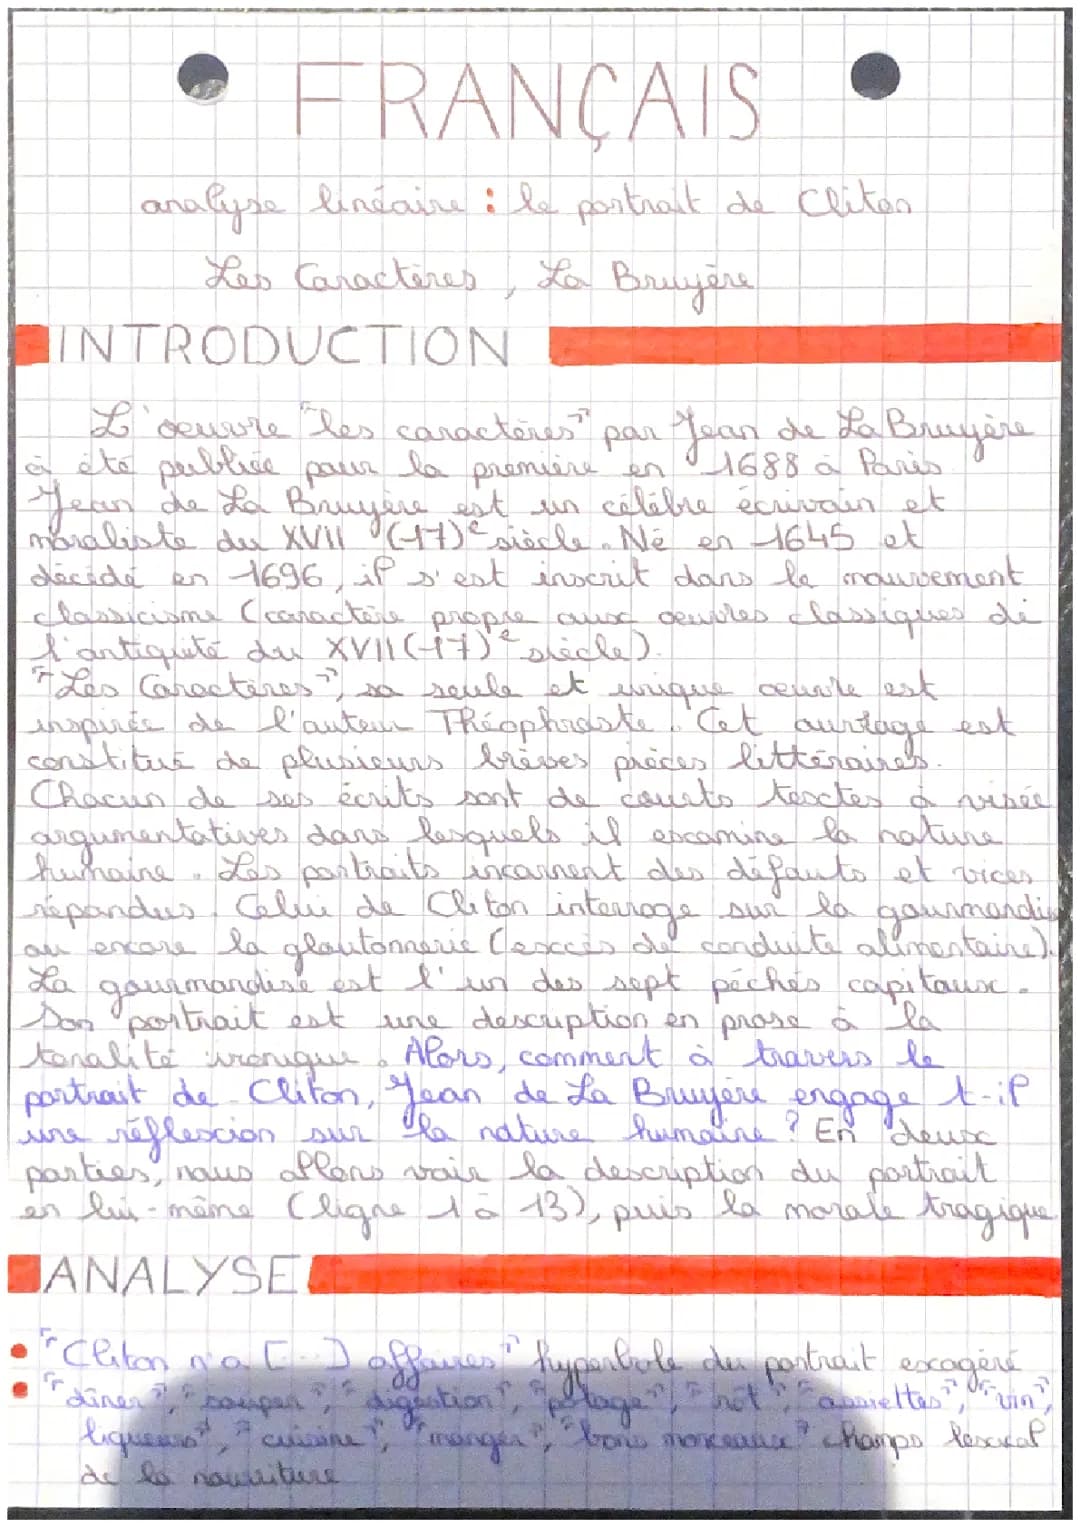 FRANÇAIS
analyse linéaire : le portrait de Cliton
Les Caractères, La Bruyère
INTRODUCTION
L'oeuvre "les caractères" par Jean de La Bruyère
à été publiée pour la première en 1688 à Paris
Jean de La Bruyère est un célèbre écrivain et
moraliste du XVII (17)e siècle. Né en 1645 et
décédé en 1696, il s'est inscrit dans le mouvement
classicisme (caractère propre aux oeuvres classiques de
l'antiquité du XVII (17)e siècle).
"Les Caractères", sa seule et unique oeuvre est
inspirée de l'auteur Théophraste. Cet ouvrage est
constitué de plusieurs brèves pièces littéraires.
Chacun de ses écrits sont de courts textes à visée
argumentatives dans lesquels il examine la nature
humaine. Les portraits incarnent des défauts et vices
répandus. Celui de Cliton interroge sur la gourmandise
ou encore la gloutonnerie (excès de conduite alimentaire).
La gourmandise est l'un des sept péchés capitaux.
Son portrait est une description en prose à la
tonalité ironique. Alors, comment à travers le
portrait de Cliton, Jean de La Bruyère engage t-il
une réflexion sur la nature humaine? En deux
parties, nous allons voir la description du portrait
en lui-même (ligne 1 à 13), puis la morale tragique
ANALYSE
• "Cliton n'a [...] affaires" hyperbole du portrait exagéré
• "dîner", "souper", "digestion", "potage", "rôt", "assiettes", "vin",
liqueurs", "cuisine", "manger", "bons morceaux" champs lexical
de la nourriture